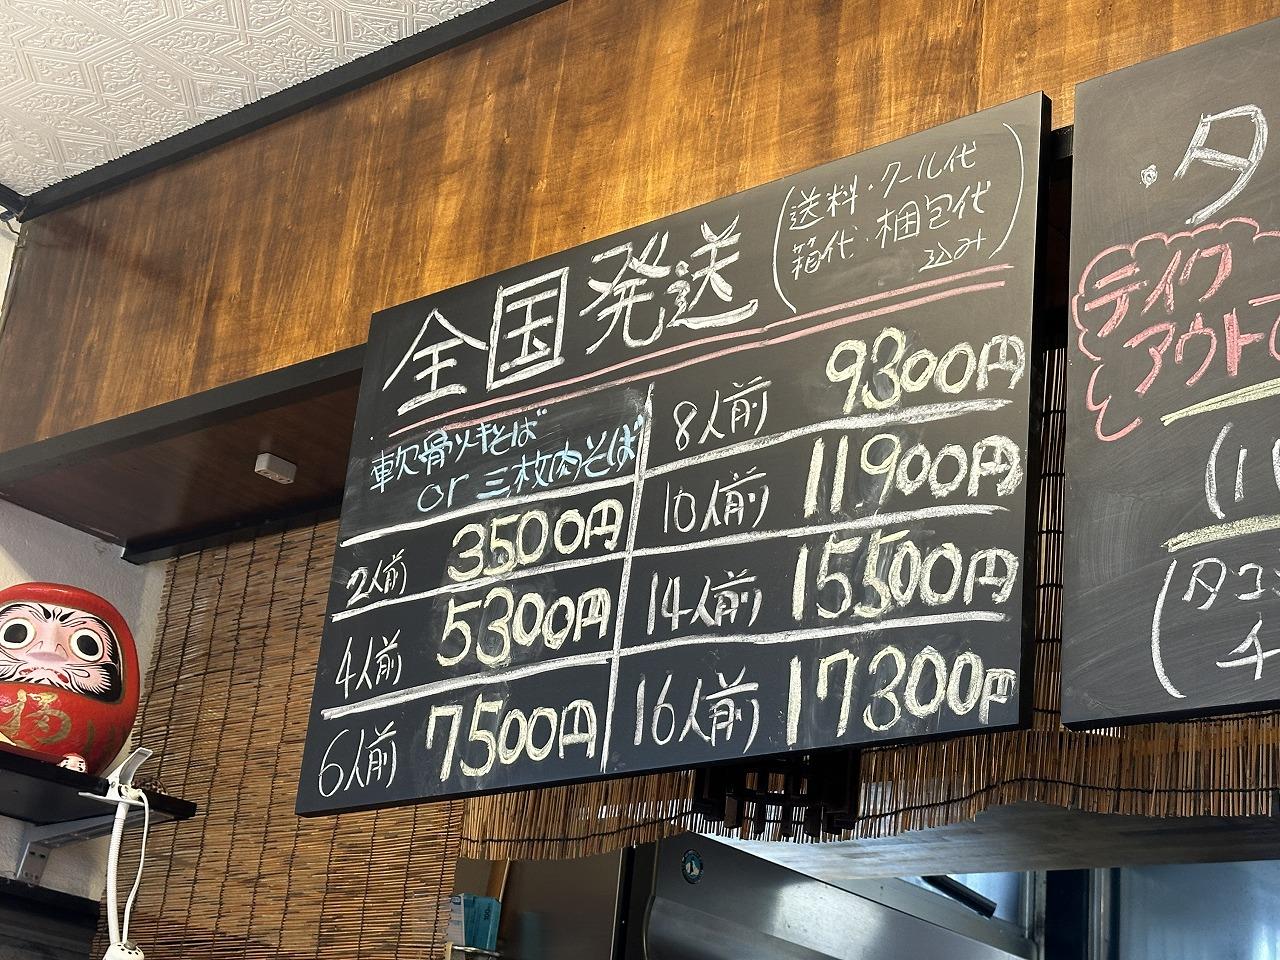 全国発送
(送料・クール代
箱代・梱包代
込み)
軟骨ソーキそば
or 三枚肉そば
2人前 3500円
4人前 5300円
6人前 7500円
8人前 9300円
10人前 11900円
14人前 15500円
16人前 17300円
・タ
テイク
アウト
(1
(タコ
チ